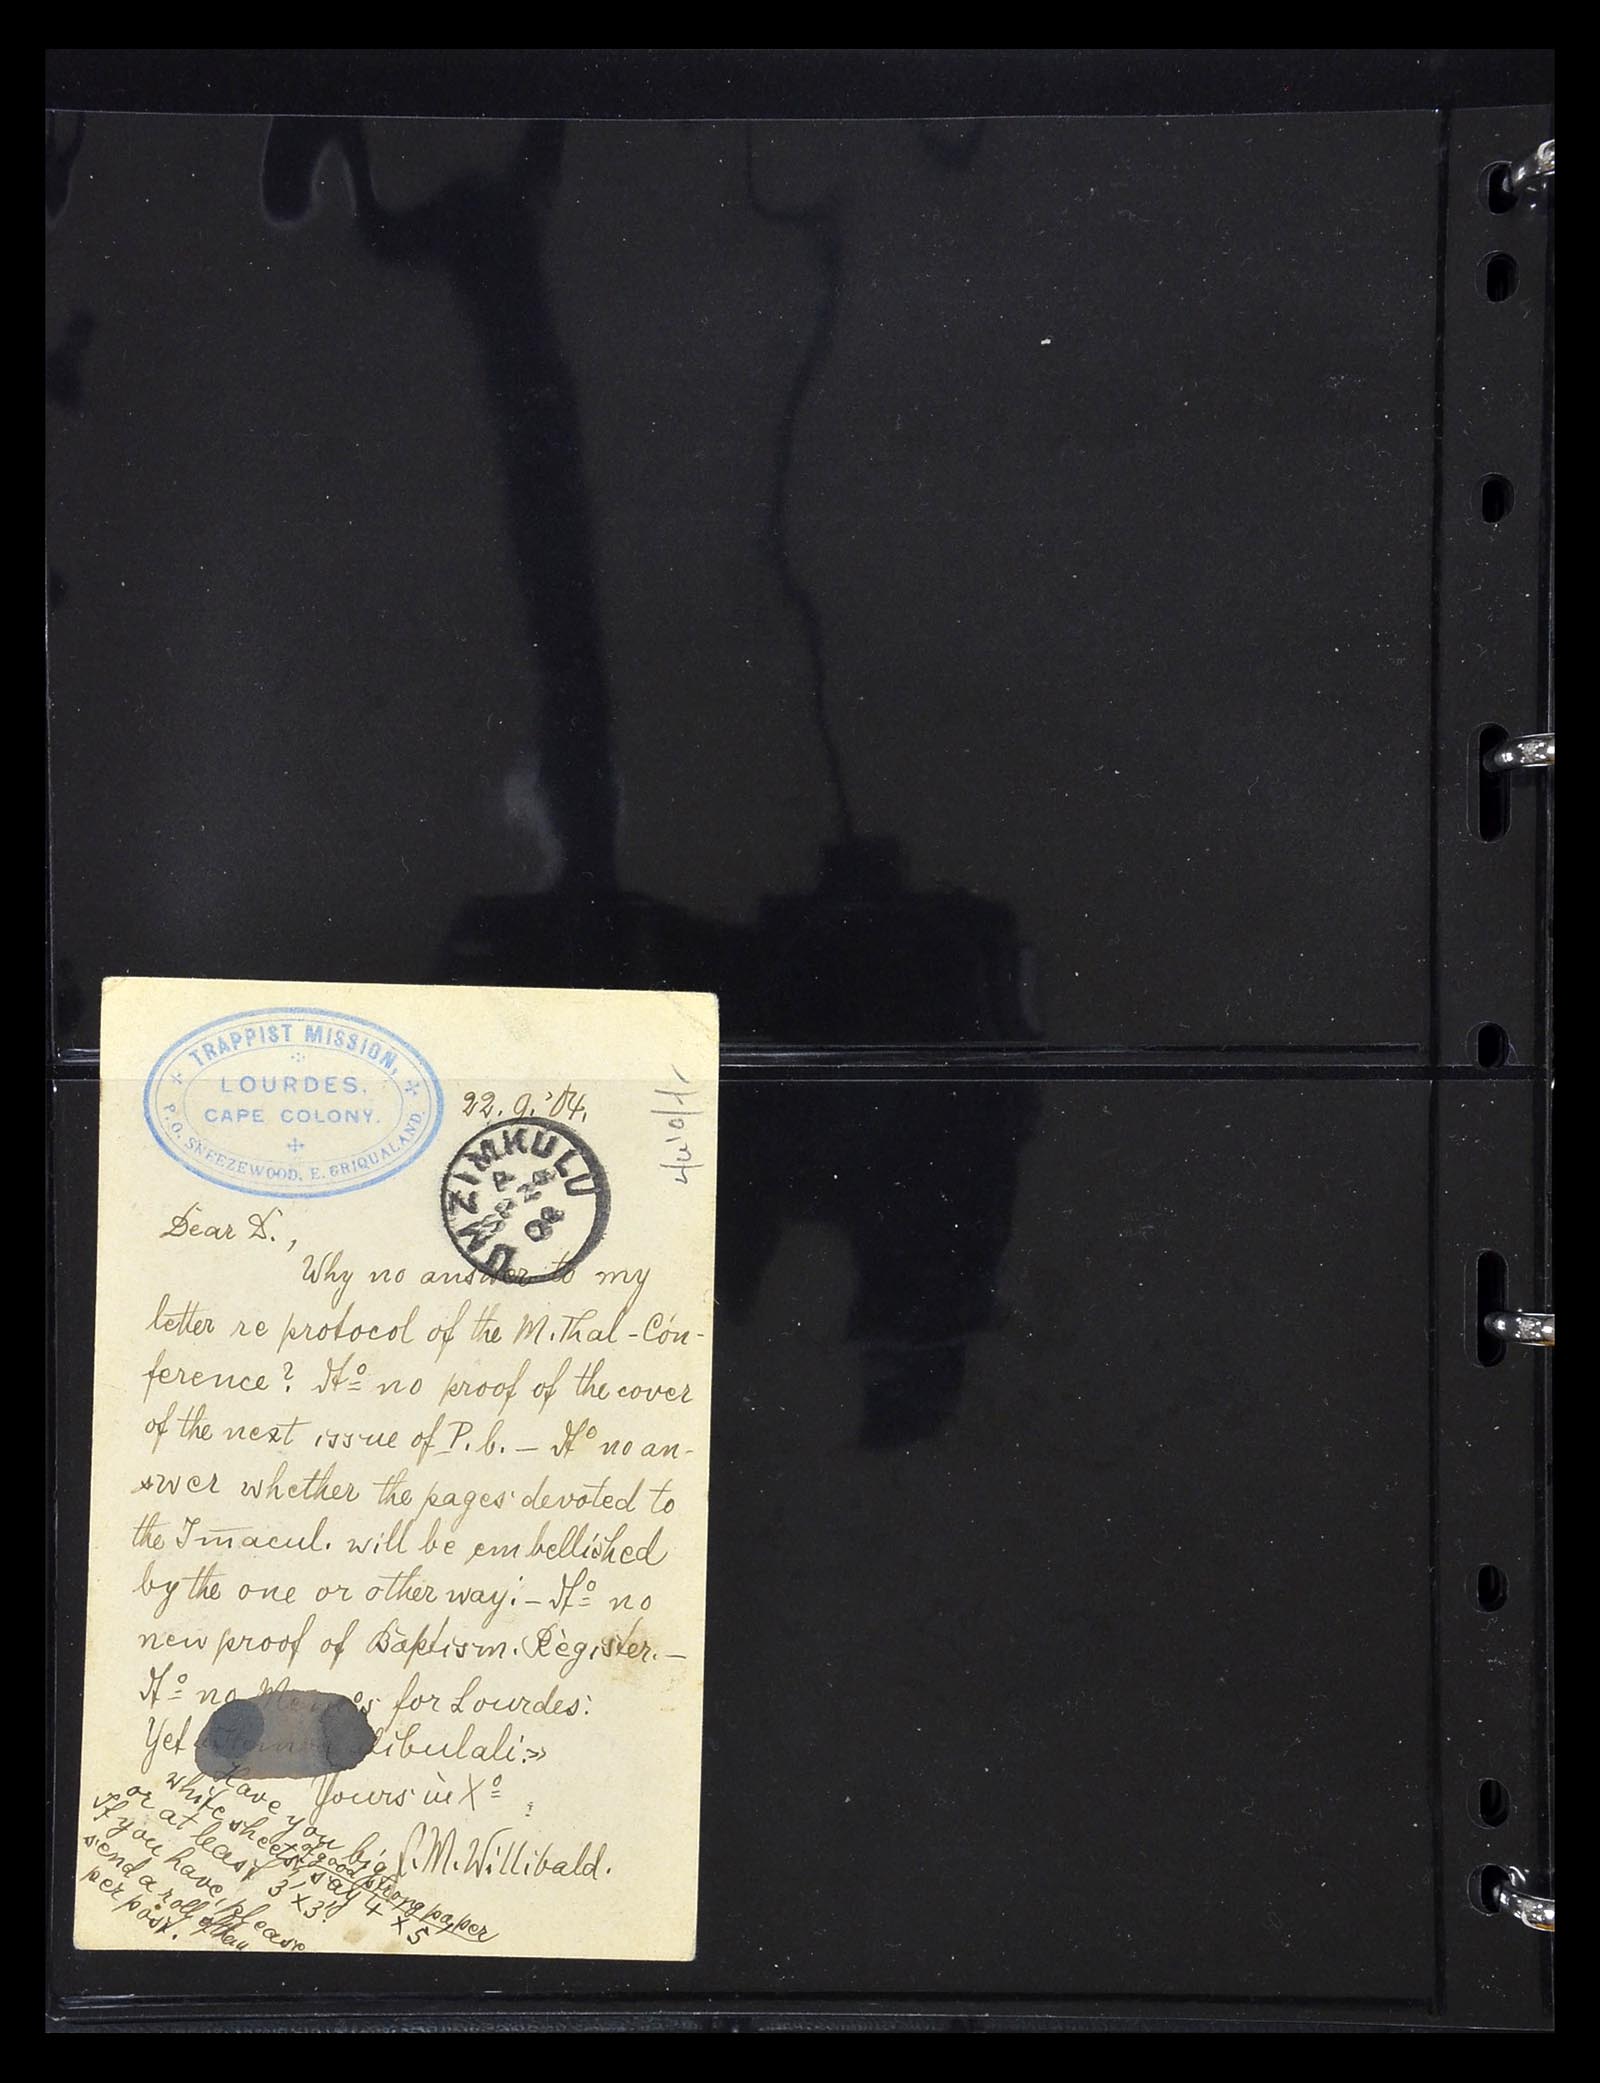 TRAPPIST MISSION,
LOURDES,
CAPE COLONY.
P.O. SNEEZEWOOD, E. GRIQUALAND.
22. 9. '04.
UMZIMKULU
A
SP 24
04
Dear D.,
Why no answer to my
letter re protocol of the M. Thal-Con-
ference? It° no proof of the cover
of the next issue of P. b. — It° no an-
swer whether the pages devoted to
the Im̄acul. will be embellished
by the one or other way: — It° no
new proof of Baptism. Register. —
It° no for Lourdes:
Yet libulali:»
Yours in X°
P. M. Willibald.
Have you big
white sheets, say 4 x 5
of good strong paper
or at least 3 x 3!
If you have, please
send a roll of them
per post.